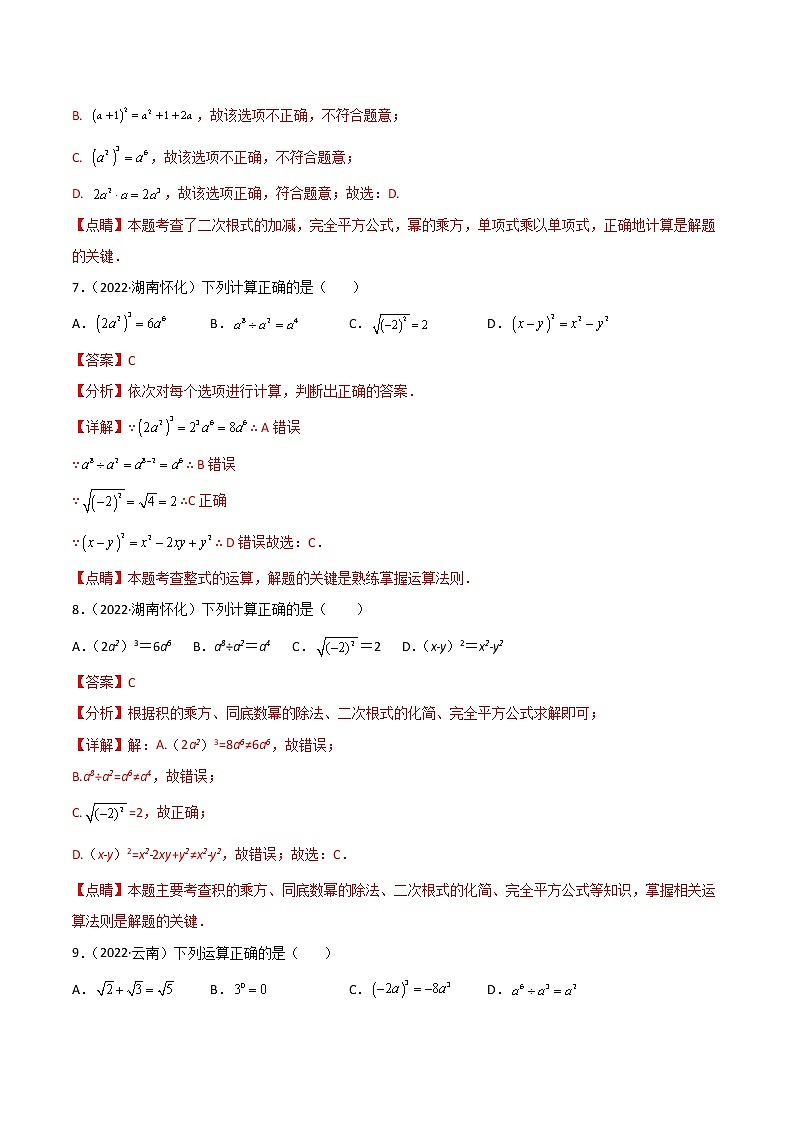 B. (a+1)²=a²+1+2a，故该选项不正确，不符合题意；
C. (a²)³=a⁶，故该选项不正确，不符合题意；
D. 2a²·a=2a³，故该选项正确，符合题意；故选：D.
【点睛】本题考查了二次根式的加减，完全平方公式，幂的乘方，单项式乘以单项式，正确地计算是解题
的关键．
7.（2022·湖南怀化）下列计算正确的是（　　）
A．(2a²)³=6a⁶ B．a⁸÷a²=a⁴ C．√(−2)²=2 D．(x−y)²=x²−y²
【答案】C
【分析】依次对每个选项进行计算，判断出正确的答案．
【详解】∵(2a²)³=2³a⁶=8a⁶∴A 错误
∵a⁸÷a²=a⁸⁻²=a⁶∴B 错误
∵√(−2)²=√4=2∴C 正确
∵(x−y)²=x²−2xy+y²∴D 错误故选：C．
【点睛】本题考查整式的运算，解题的关键是熟练掌握运算法则．
8.（2022·湖南怀化）下列计算正确的是（　　）
A．（2a²）³＝6a⁶ B．a⁸÷a²＝a⁴ C．√(−2)²＝2 D．（x-y）²＝x²-y²
【答案】C
【分析】根据积的乘方、同底数幂的除法、二次根式的化简、完全平方公式求解即可；
【详解】解：A.（2a²）³=8a⁶≠6a⁶，故错误；
B.a⁸÷a²=a⁶≠a⁴，故错误；
C.√(−2)²=2，故正确；
D.（x-y）²=x²-2xy+y²≠x²-y²，故错误；故选：C．
【点睛】本题主要考查积的乘方、同底数幂的除法、二次根式的化简、完全平方公式等知识，掌握相关运
算法则是解题的关键．
9.（2022·云南）下列运算正确的是（　　）
A．√2+√3=√5 B．3⁰=0 C．(−2a)³=−8a³ D．a⁶÷a³=a²